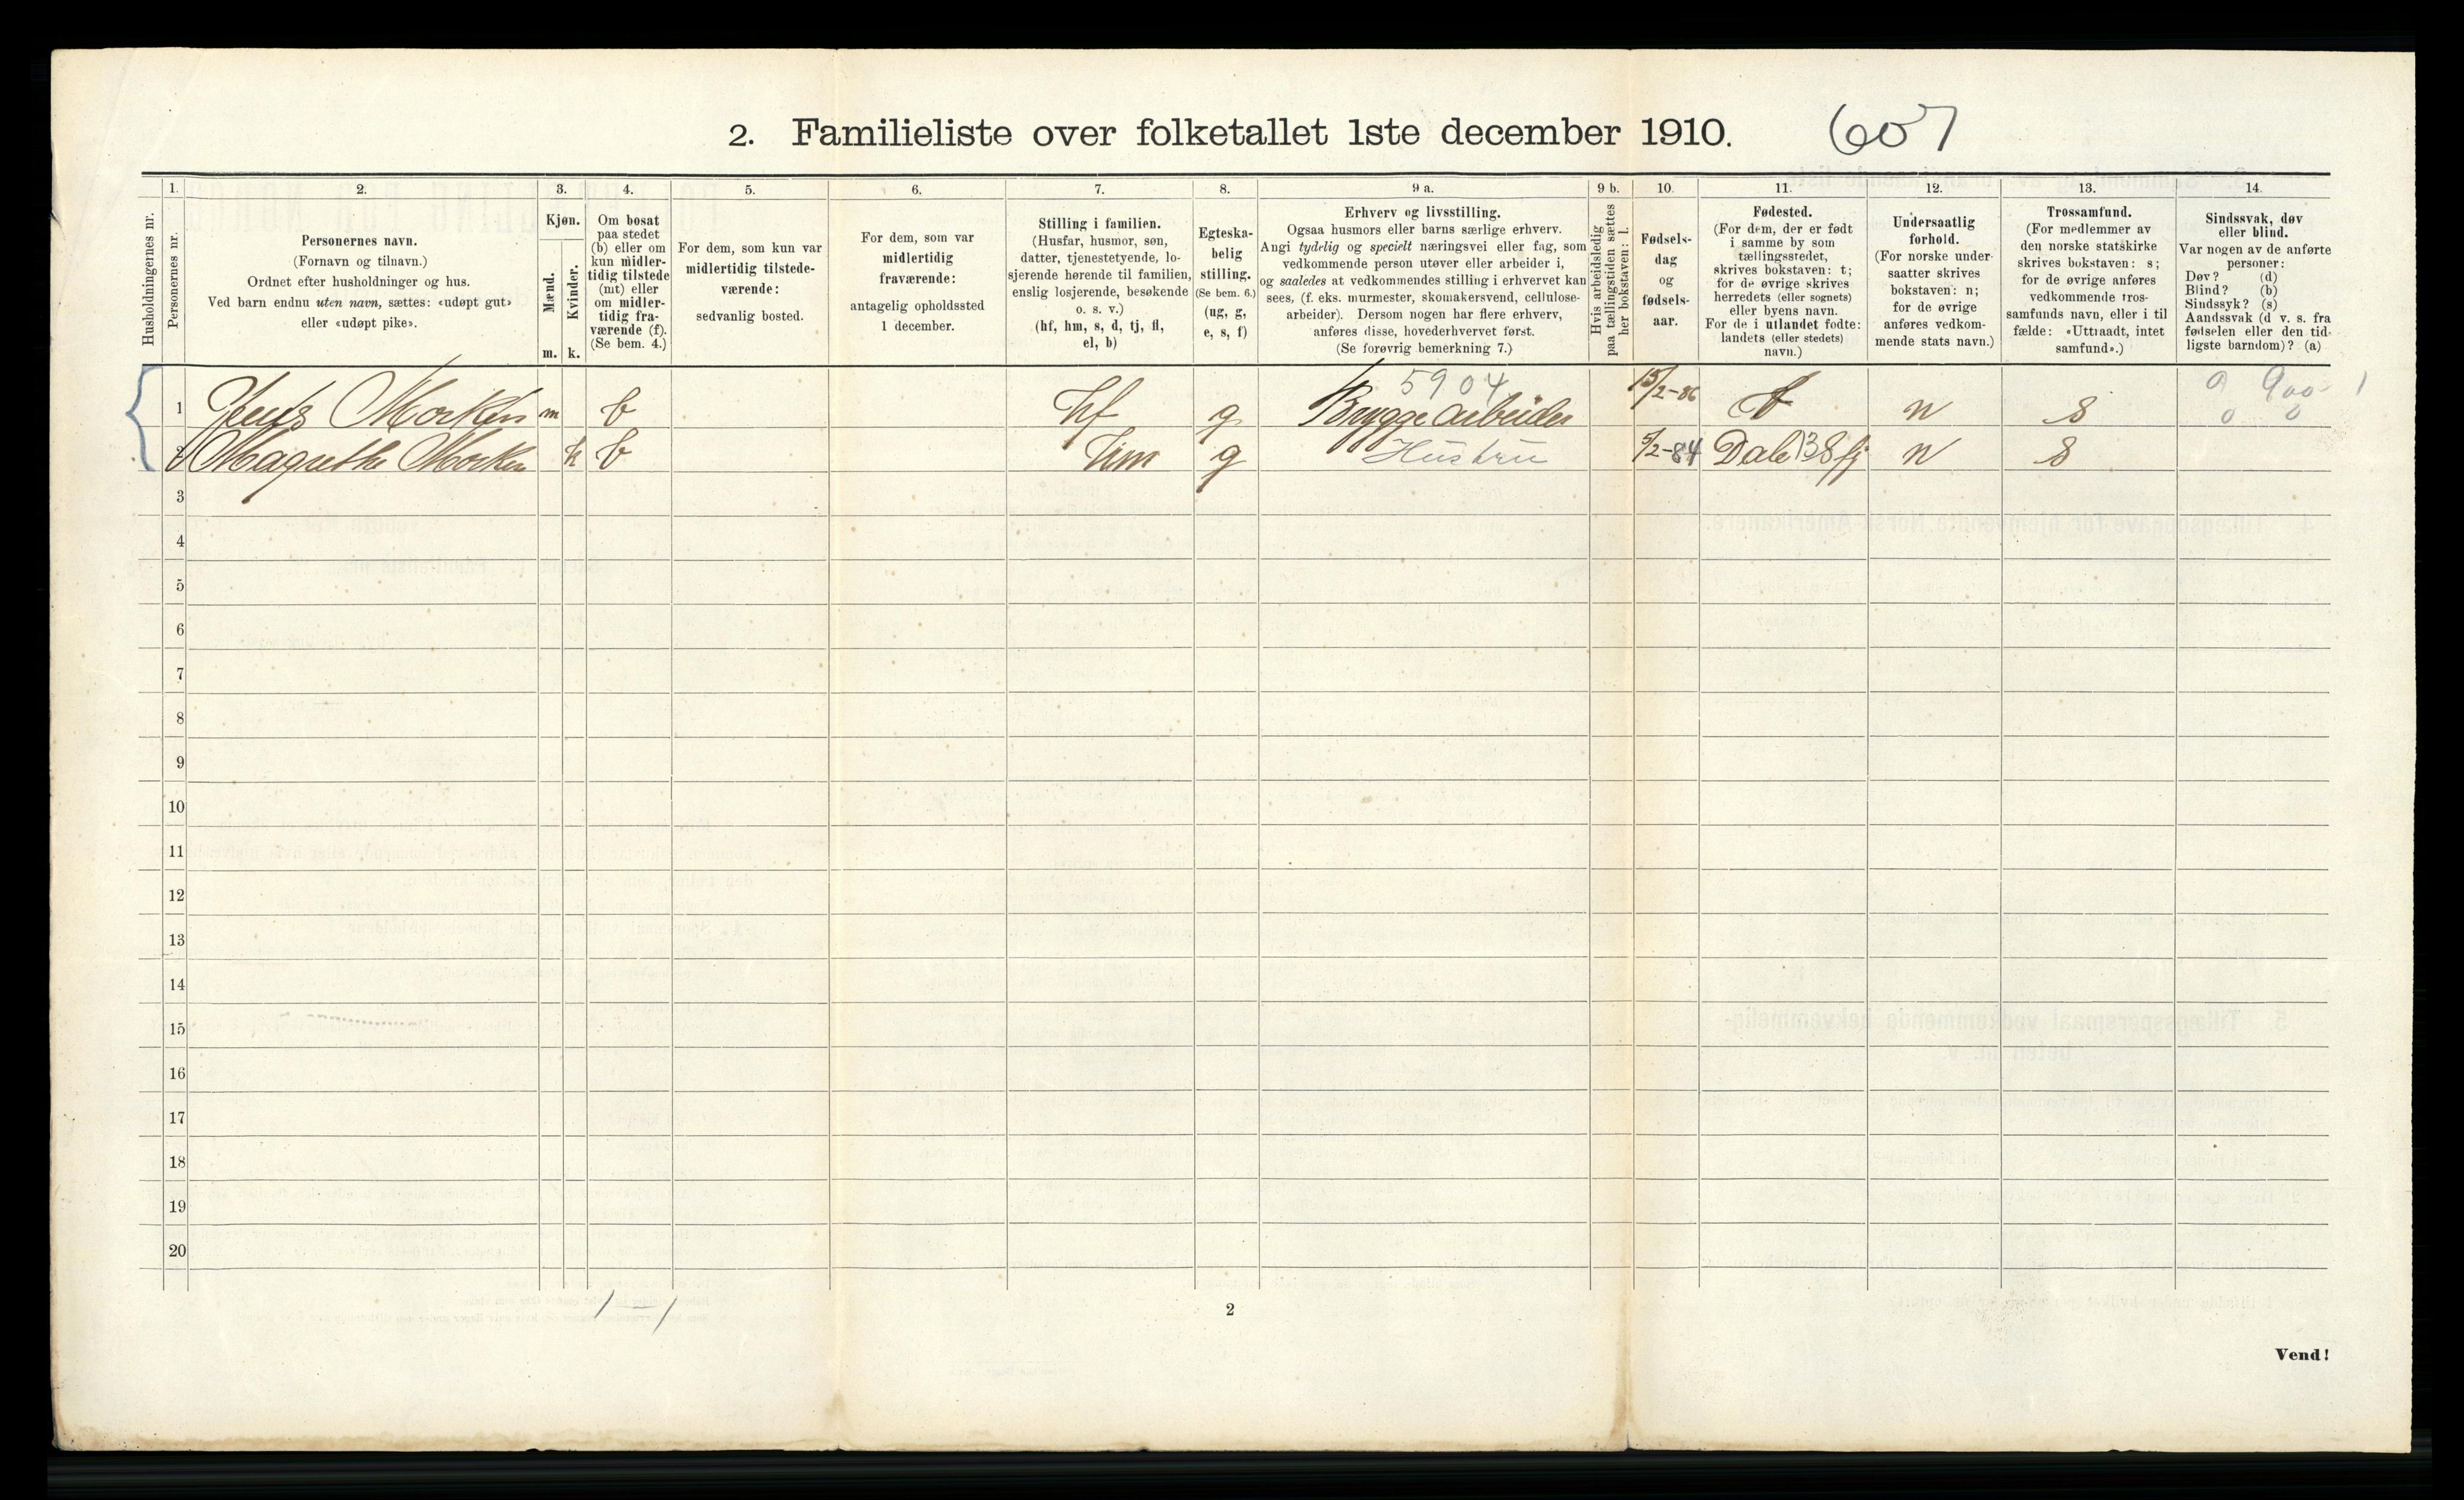 2. Familieliste over folketallet 1ste december 1910. 607
Husholdningernes nr.
1.
Personernes nr.
2.
Personernes navn.
(Fornavn og tilnavn.)
Ordnet efter husholdninger og hus.
Ved barn endnu uten navn, sættes: «udøpt gut»
eller «udøpt pike».
3.
Kjøn.
Mænd.
Kvinder.
m. k.
4.
Om bosat
paa stedet
(b) eller om
kun midler-
tidig tilstede
(mt) eller
om midler-
tidig fra-
værende (f).
(Se bem. 4.)
5.
For dem, som kun var
midlertidig tilstede-
værende:
sedvanlig bosted.
6.
For dem, som var
midlertidig
fraværende:
antagelig opholdssted
1 december.
7.
Stilling i familien.
(Husfar, husmor, søn,
datter, tjenestetyende, lo-
sjerende hørende til familien,
enslig losjerende, besøkende
o. s. v.)
(hf, hm, s, d, tj, fl,
el, b)
8.
Egteska-
belig
stilling.
(Se bem. 6.)
(ug, g,
e, s, f)
9 a.
Erhverv og livsstilling.
Ogsaa husmors eller barns særlige erhverv.
Angi tydelig og specielt næringsvei eller fag, som
vedkommende person utøver eller arbeider i,
og saaledes at vedkommendes stilling i erhvervet kan
sees, (f. eks. murmester, skomakersvend, cellulose-
arbeider). Dersom nogen har flere erhverv,
anføres disse, hovederhvervet først.
(Se forøvrig bemerkning 7.)
9 b.
Hvis arbeidsledig
paa tællingstiden sættes
her bokstaven: l.
10.
Fødsels-
dag
og
fødsels-
aar.
11.
Fødested.
(For dem, der er født
i samme by som
tællingsstedet,
skrives bokstaven: t;
for de øvrige skrives
herredets (eller sognets)
eller byens navn.
For de i utlandet fødte:
landets (eller stedets)
navn.)
12.
Undersaatlig
forhold.
(For norske under-
saatter skrives
bokstaven: n;
for de øvrige
anføres vedkom-
mende stats navn.)
13.
Trossamfund.
(For medlemmer av
den norske statskirke
skrives bokstaven: s;
for de øvrige anføres
vedkommende tros-
samfunds navn, eller i til
fælde: «Uttraadt, intet
samfund».)
14.
Sindssvak, døv
eller blind.
Var nogen av de anførte
personer:
Døv? (d)
Blind? (b)
Sindssyk? (s)
Aandssvak (d v. s. fra
fødselen eller den tid-
ligste barndom)? (a)
5904
1 Jens Morken m b hf g Bryggearbeider 15/2-86 t n s
2 Magrethe Morken k b hm g Hustru 5/2-84 Dale 13 Sfj n s
3
4
5
6
7
8
9
10
11
12
13
14
15
16
17
18
19
20
1 – 1
2
Vend!